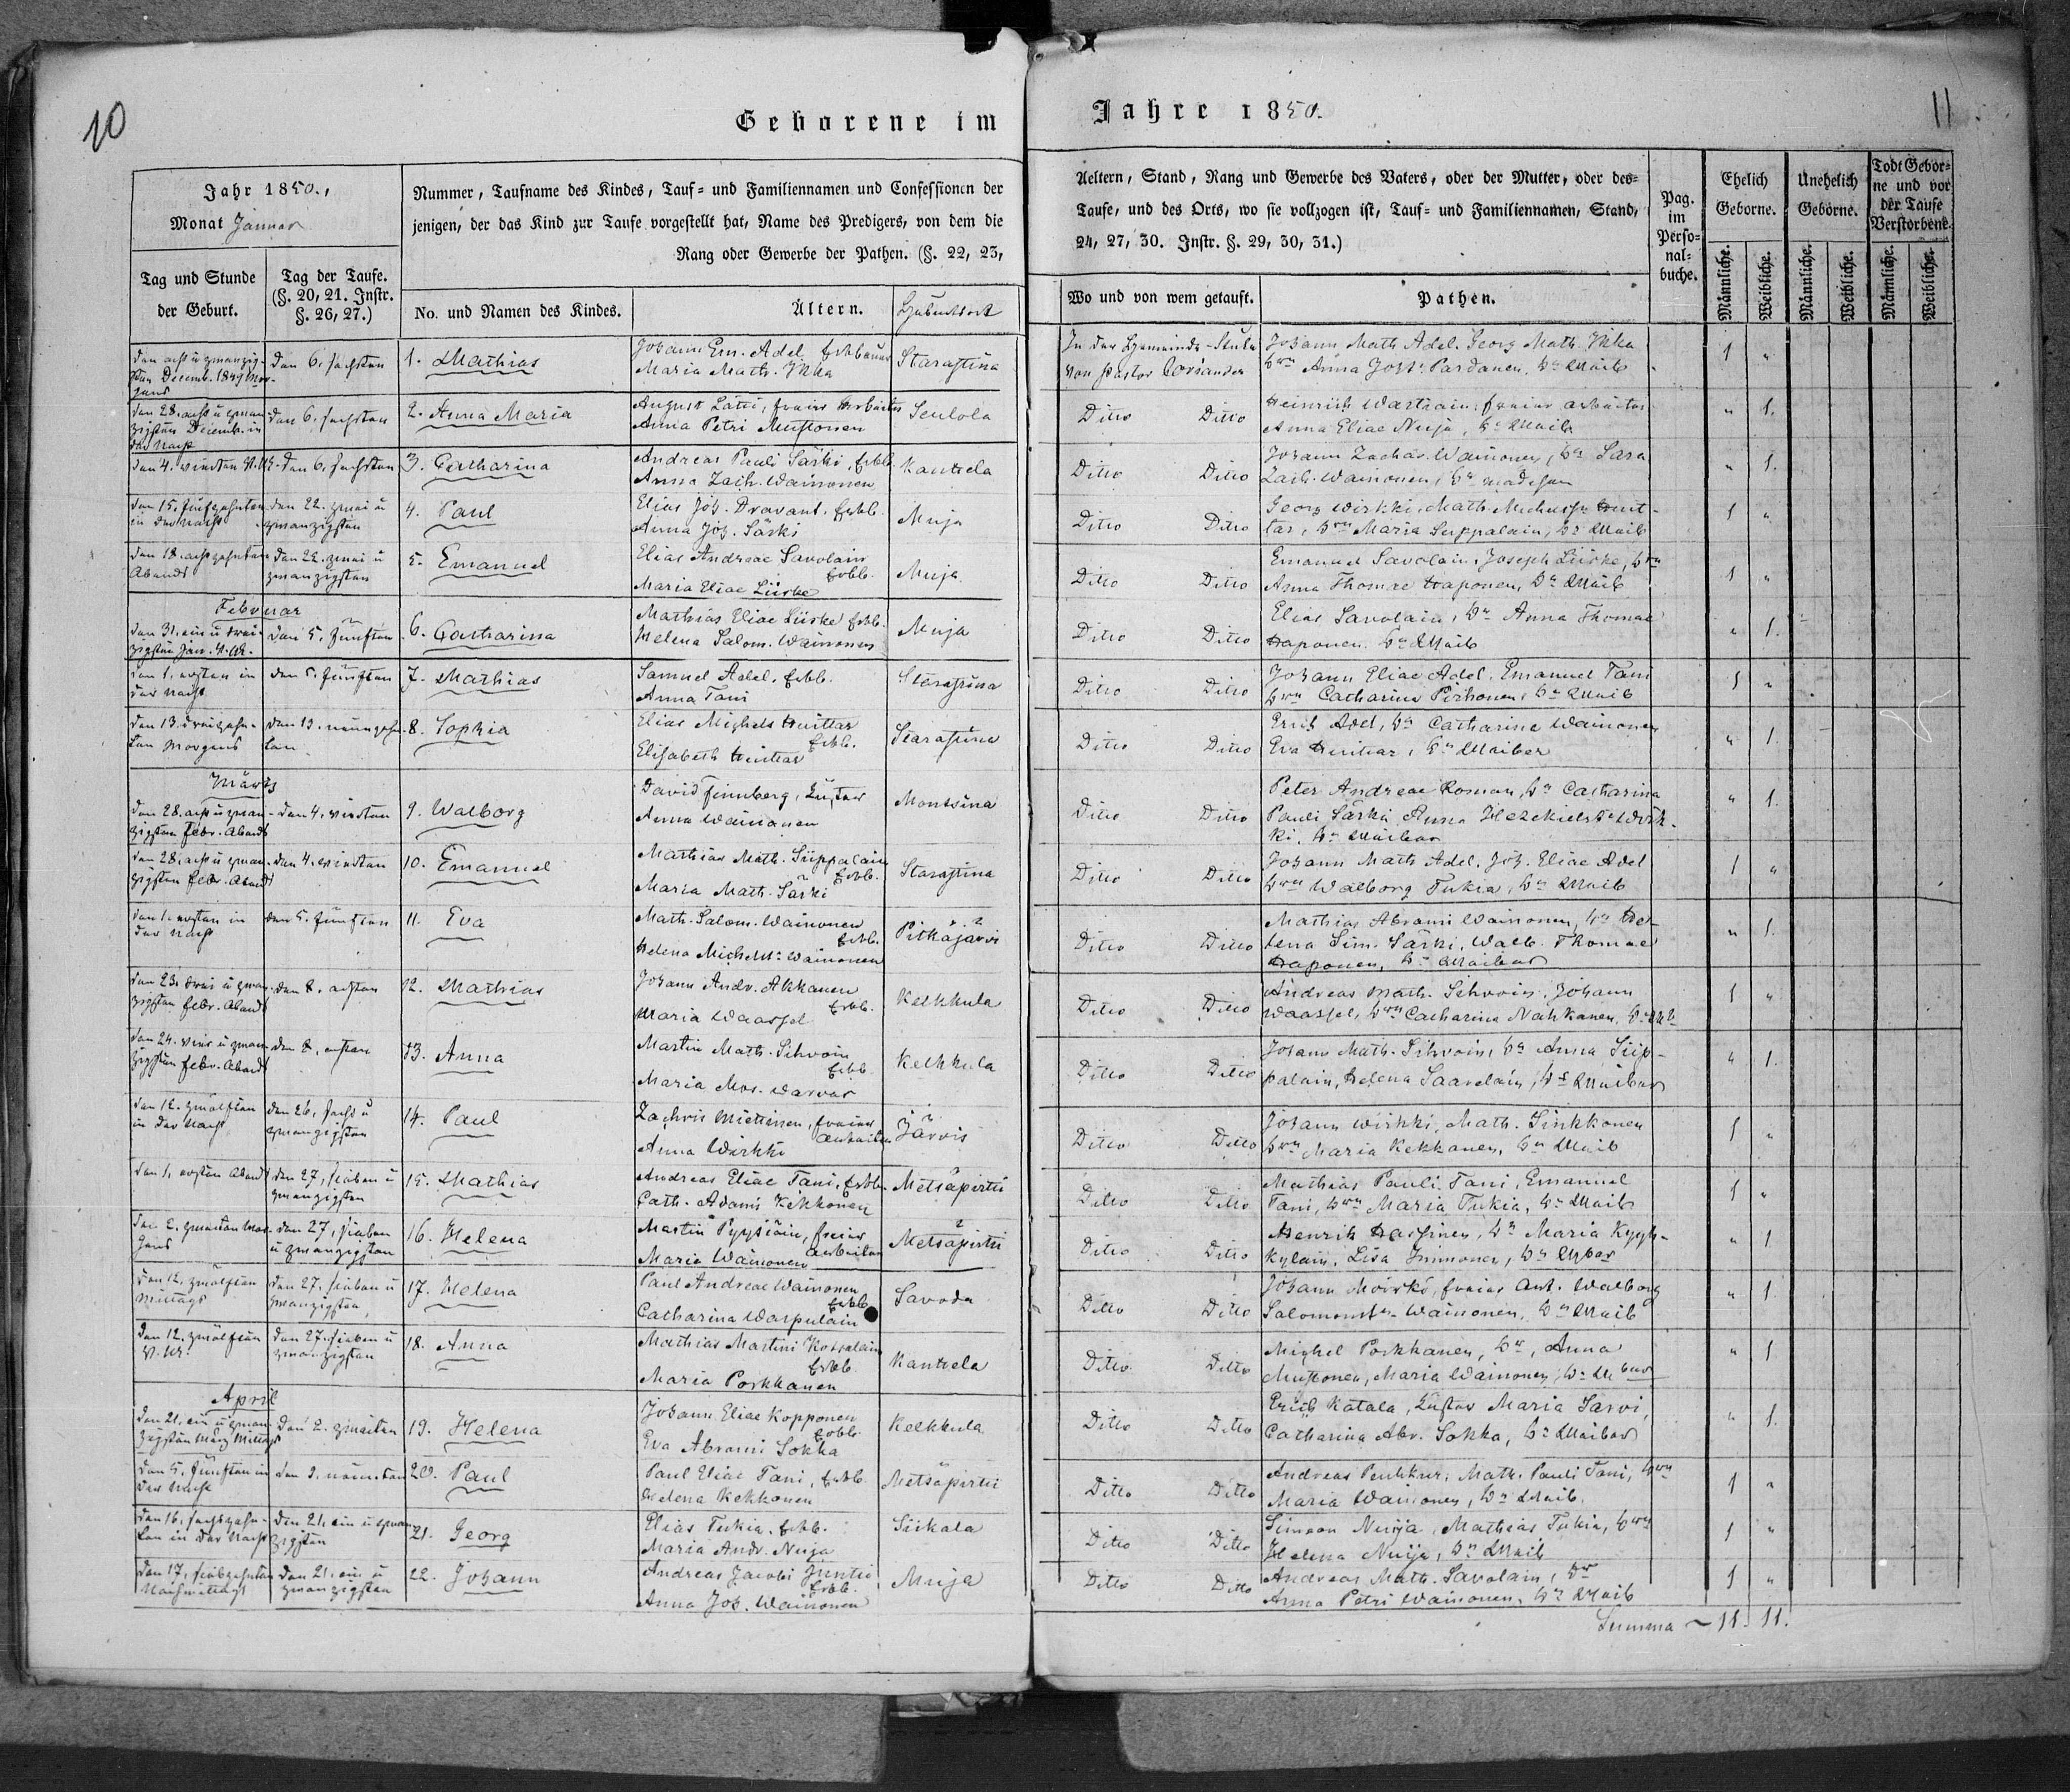 10
11
Geborene im
Jahre 1850.
Jahr 1850.,
Monat Januar
Tag und Stunde
der Geburt.
Tag der Taufe.
(§. 20, 21. Instr.
§. 26, 27.)
Nummer, Taufname des Kindes, Tauf- und Familiennamen und Confessionen der
jenigen, der das Kind zur Taufe vorgestellt hat, Name des Predigers, von dem die
Rang oder Gewerbe der Pathen. (§. 22, 23,
No. und Namen des Kindes.
Ältern.
Geburtsort
Aeltern, Stand, Rang und Gewerbe des Vaters, oder der Mutter, oder des-
Taufe, und des Orts, wo sie vollzogen ist, Tauf- und Familiennamen, Stand,
24, 27, 30. Instr. §. 29, 30, 31.)
Wo und von wem getauft.
Pathen.
Pag.
im
Perso-
nal-
buche.
Ehelich
Geborne.
Unehelich
Geborne.
Todt Gebor-
ne und vor
der Taufe
Verstorbene.
Männliche.
Weibliche.
Männliche.
Weibliche.
Männliche.
Weibliche.
den acht u zwanzig-
sten Decemb. 1849 Mor-
gens
den 6. sechsten
1. Mathias
Johann Em. Adel, Erbbauer
Maria Math. Ikka
Starastina
In der Gemeinde-Stube
von Pastor Coriander
Johann Math. Adel. Georg Math. Ikka
Anna Pardanen, Weib
1 "
den 28. acht u zwan-
zigsten Decemb. in
der Nacht
den 6. sechsten
2. Anna Maria
August Lätti, freier Arbeiter
Anna Petri Mustonen
Seulola
Ditto Ditto
Heinrich freier Arbeiter
Anna Eliae Nuija, Weib
" 1.
den 4. vierten
den 6. sechsten
3. Catharina
Andreas Pauli Särki, Erbb.
Anna Zach. Wainonen
Kantela
Ditto Ditto
Johann Zachar. Wainonen, Sara
Zach. Wainonen, Mädchen
" 1.
den 15. fünfzehnten
in der Nacht
den 22. zwei u
zwanzigsten
4. Paul
Elias Joh. Dravant, Erbb.
Anna Joh. Särki
Muja
Ditto Ditto
Georg Wirkki, Math. Huit-
tar, Maria Suppalain, Weib
1 "
den 18. achtzehnten
Abends
den 22. zwei u
zwanzigsten
5. Emanuel
Elias Andreae Savolain
Erbb.
Maria Eliae Liiske
Muja
Ditto Ditto
Emanuel Savolain, Joseph Liiske,
Anna Thomae Haponen, Weib
1 "
Februar
den 31. ein u drei-
zigsten Jan.
den 5. fünften
6. Catharina
Mathias Eliae Liiske Erbb.
Helena Salom. Wainonen
Muja
Ditto Ditto
Elias Savolain, Anna Thomae
Haponen, Weib
" 1.
den 1. ersten in
der Nacht
den 5. fünften
7. Mathias
Samuel Adel, Erbb.
Anna Tani
Starastina
Ditto Ditto
Johann Eliae Adel. Emanuel Tani
Catharina Pirhonen, Weib
1 "
den 13. dreizehn-
ten Morgens
den 19. neunzehn-
ten
8. Sophia
Elias Michels Huittar
Erbb.
Elisabeth Huittar
Starastina
Ditto Ditto
Erich Adel, Catharina Wainonen
Eva Huittar, Weiber
" 1.
März
den 28. acht u zwan-
zigsten Febr. Abends
den 4. vierten
9. Walborg
David Finnberg, Küster
Anna Wainonen
Montsina
Ditto Ditto
Peter Andreae Roman, Catharina
Pauli Särki, Anna Wirk-
ki, Weiber
" 1.
den 28. acht u zwan-
zigsten Febr. Abends
den 4. vierten
10. Emanuel
Mathias Math. Siippalain
Erbb.
Maria Math. Särki
Starastina
Ditto Ditto
Johann Math. Adel. Joh. Eliae Adel
Walborg Tukia, Weib
1 "
den 1. ersten in
der Nacht
den 5. fünften
11. Eva
Math. Salom. Wainonen
Erbb.
Helena Wainonen
Pitkäjärvi
Ditto Ditto
Mathias Abrami Wainonen, He-
lena Sim. Särki, Walb. Thomae
Haponen, Weiber
" 1.
den 23. drei u zwan-
zigsten Febr. Abends
den 8. achten
12. Mathias
Johann Andr. Akkanen
Erbb.
Maria Waassel
Kelkkula
Ditto Ditto
Andreas Math. Sihvoin, Johann
Waassel, Catharina Nahkanen,
1 "
den 24. vier u zwan-
zigsten Febr. Abends
den 8. achten
13. Anna
Martin Math. Sihvoin
Erbb.
Maria Mos. Warvas
Kelkkula
Ditto Ditto
Johann Math. Sihvoin, Anna Siip-
palain, Helena Saavelain, Weiber
" 1.
den 12. zwölften
in der Nacht
den 26. sechs u
zwanzigsten
14. Paul
Zachris Miettinen, freier
Arbeiter
Anna Wirkki
Järvis
Ditto Ditto
Johann Wirkki, Math. Sinkkonen
Maria Kekkonen, Weib
1 "
den 1. ersten Abends
den 27. sieben u
zwanzigsten
15. Mathias
Andreas Eliae Tani, Erbb.
Cath. Adami Kekkonen
Metsäpirtti
Ditto Ditto
Mathias Pauli Tani, Emanuel
Tani, Maria Tukia, Weib
1 "
den 2. zweiten Mor-
gens
den 27. sieben
u zwanzigsten
16. Helena
Martin freier
Arbeiter
Maria Wainonen
Metsäpirtti
Ditto Ditto
Henrik Hassinen, Maria
Lisa Immonen,
" 1
den 12. zwölften
Mittags
den 27. sieben u
zwanzigsten
17. Helena
Paul Andreae Wainonen
Erbb.
Catharina Waspulain
Savoda
Ditto Ditto
Johann freier Arb. Walborg
Wainonen, Weib
" 1.
den 12. zwölften
den 27. sieben u
zwanzigsten
18. Anna
Mathias Martini Kossalain
Erbb.
Maria Porkkanen
Kantela
Ditto Ditto
Michel Porkkanen, Anna
Mustonen, Maria Wainonen,
" 1
April
den 21. ein u zwan-
zigsten März Mittags
den 2. zweiten
19. Helena
Johann Eliae Kopponen
Erbb.
Eva Abrami Sokka
Kelkkula
Ditto Ditto
Erich Katala, Küster Maria Sarvi,
Catharina Abr. Sokka, Weiber
" 1.
den 5. fünften in
der Nacht
den 9. neunten
20. Paul
Paul Eliae Tani, Erbb.
Helena Kekkonen
Metsäpirtti
Ditto Ditto
Andreas Math. Pauli Tani,
Maria Wainonen, Weib
1 "
den 16. sechszehn-
ten in der Nacht
den 21. ein u zwan-
zigsten
21. Georg
Elias Tukia, Erbb.
Maria Andr. Nuja
Siikala
Ditto Ditto
Simeon Nuija, Mathias Tukia,
Helena Nuija, Weib
1 "
den 17. siebzehnten
Nachmittags
den 21. ein u
zwanzigsten
22. Johann
Andreas Jacobi Junttie
Erbb.
Anna Joh. Wainonen
Muja
Ditto Ditto
Andreas Math. Savolain,
Anna Petri Wainonen, Weib
1 "
Summa ~ 11. 11.